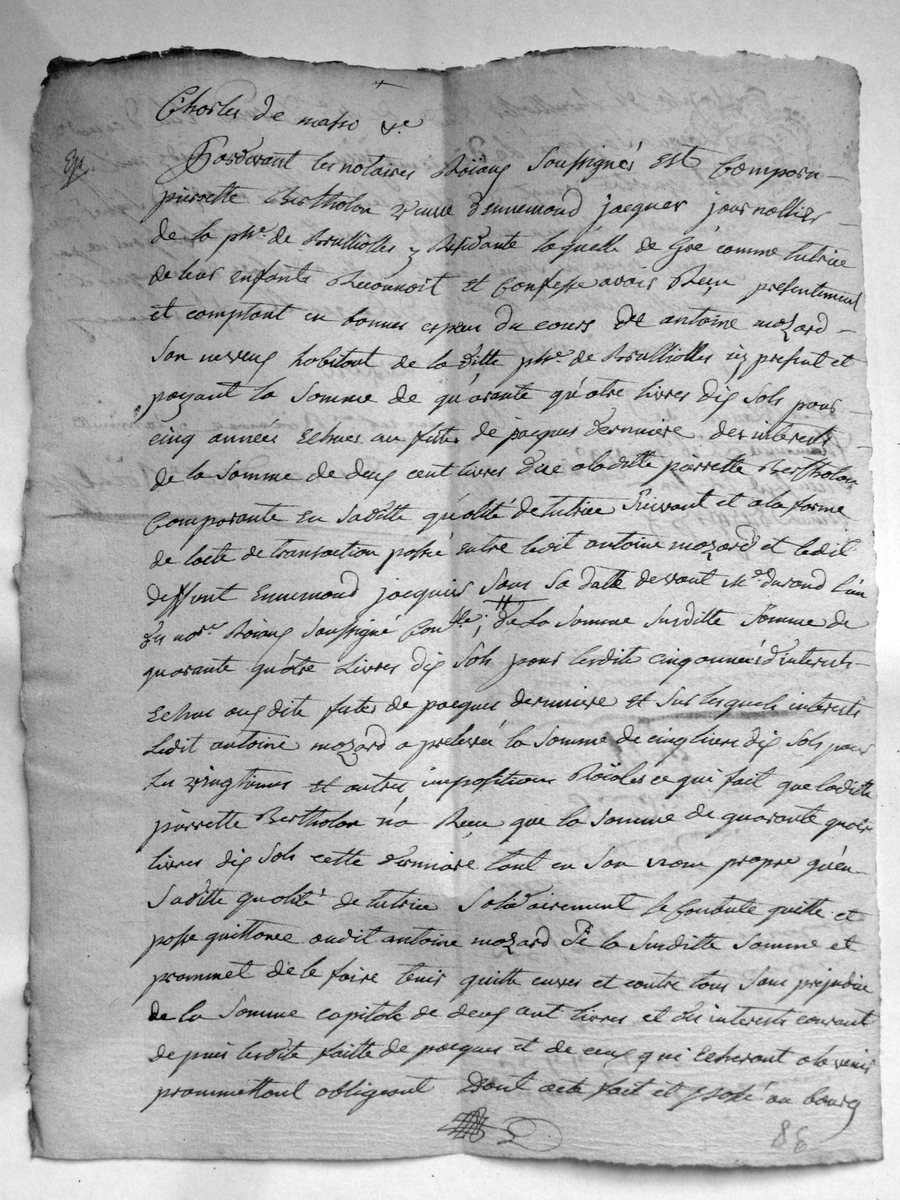 Charles de masso &c
Exp
Pardevant les notaires Roïaux soussignés est Comparu
pierrette Bertholon veuve d'ennemond jacquier journallier
de la phse de Brulliolles y Residante laquelle de Gré comme tutrice
de leur enfants Reconnoit et Confesse avoir Reçu presentement
et comptant en bonnes especes du cours de antoine mozard
son neveux habitant de la ditte phse de Brulliolles icy present et
payant la somme de quarante quatre livres dix sols pour
cinq années Echues au fetes de pacques derniere des interests
de la somme de deux cent livres due a laditte pierrette Bertholon
Comparante en saditte qualité de tutrice suivant et a la forme
de lacte de transaction passé entre ledit antoine mozard et ledit
deffunt Ennemond jacquier sous sa datte devant Me durand l'un
des nores Roïaux soussigné de La somme susditte somme de
quarante quatre Livres dix sols pour lesdite cinq années d'interests
Echue aux dite fetes de pacques derniere et sur lesquels interests
Ledit antoine mozard a prelevé la somme de cinq livres dix sols pour
les vingtiemes et autres impositions Roïales ce qui fait que laditte
pierrette Bertholon n'a Recu que la somme de quarante quatre
livres dix sols cette derniere tant en son nom propre qu'en
saditte qualité de tutrice solidairement le quitte et
passe quittance audit antoine mozard de la susditte somme et
prammet de le faire tenir quitte envers et contre tous sans prejudice
de la somme capitale de deux cent livres et des interests courant
depuis lesdite faitte de pacques et de ceux qui Echeront a lavenir
prammettant obligeant Dont acte fait et passé au bourg